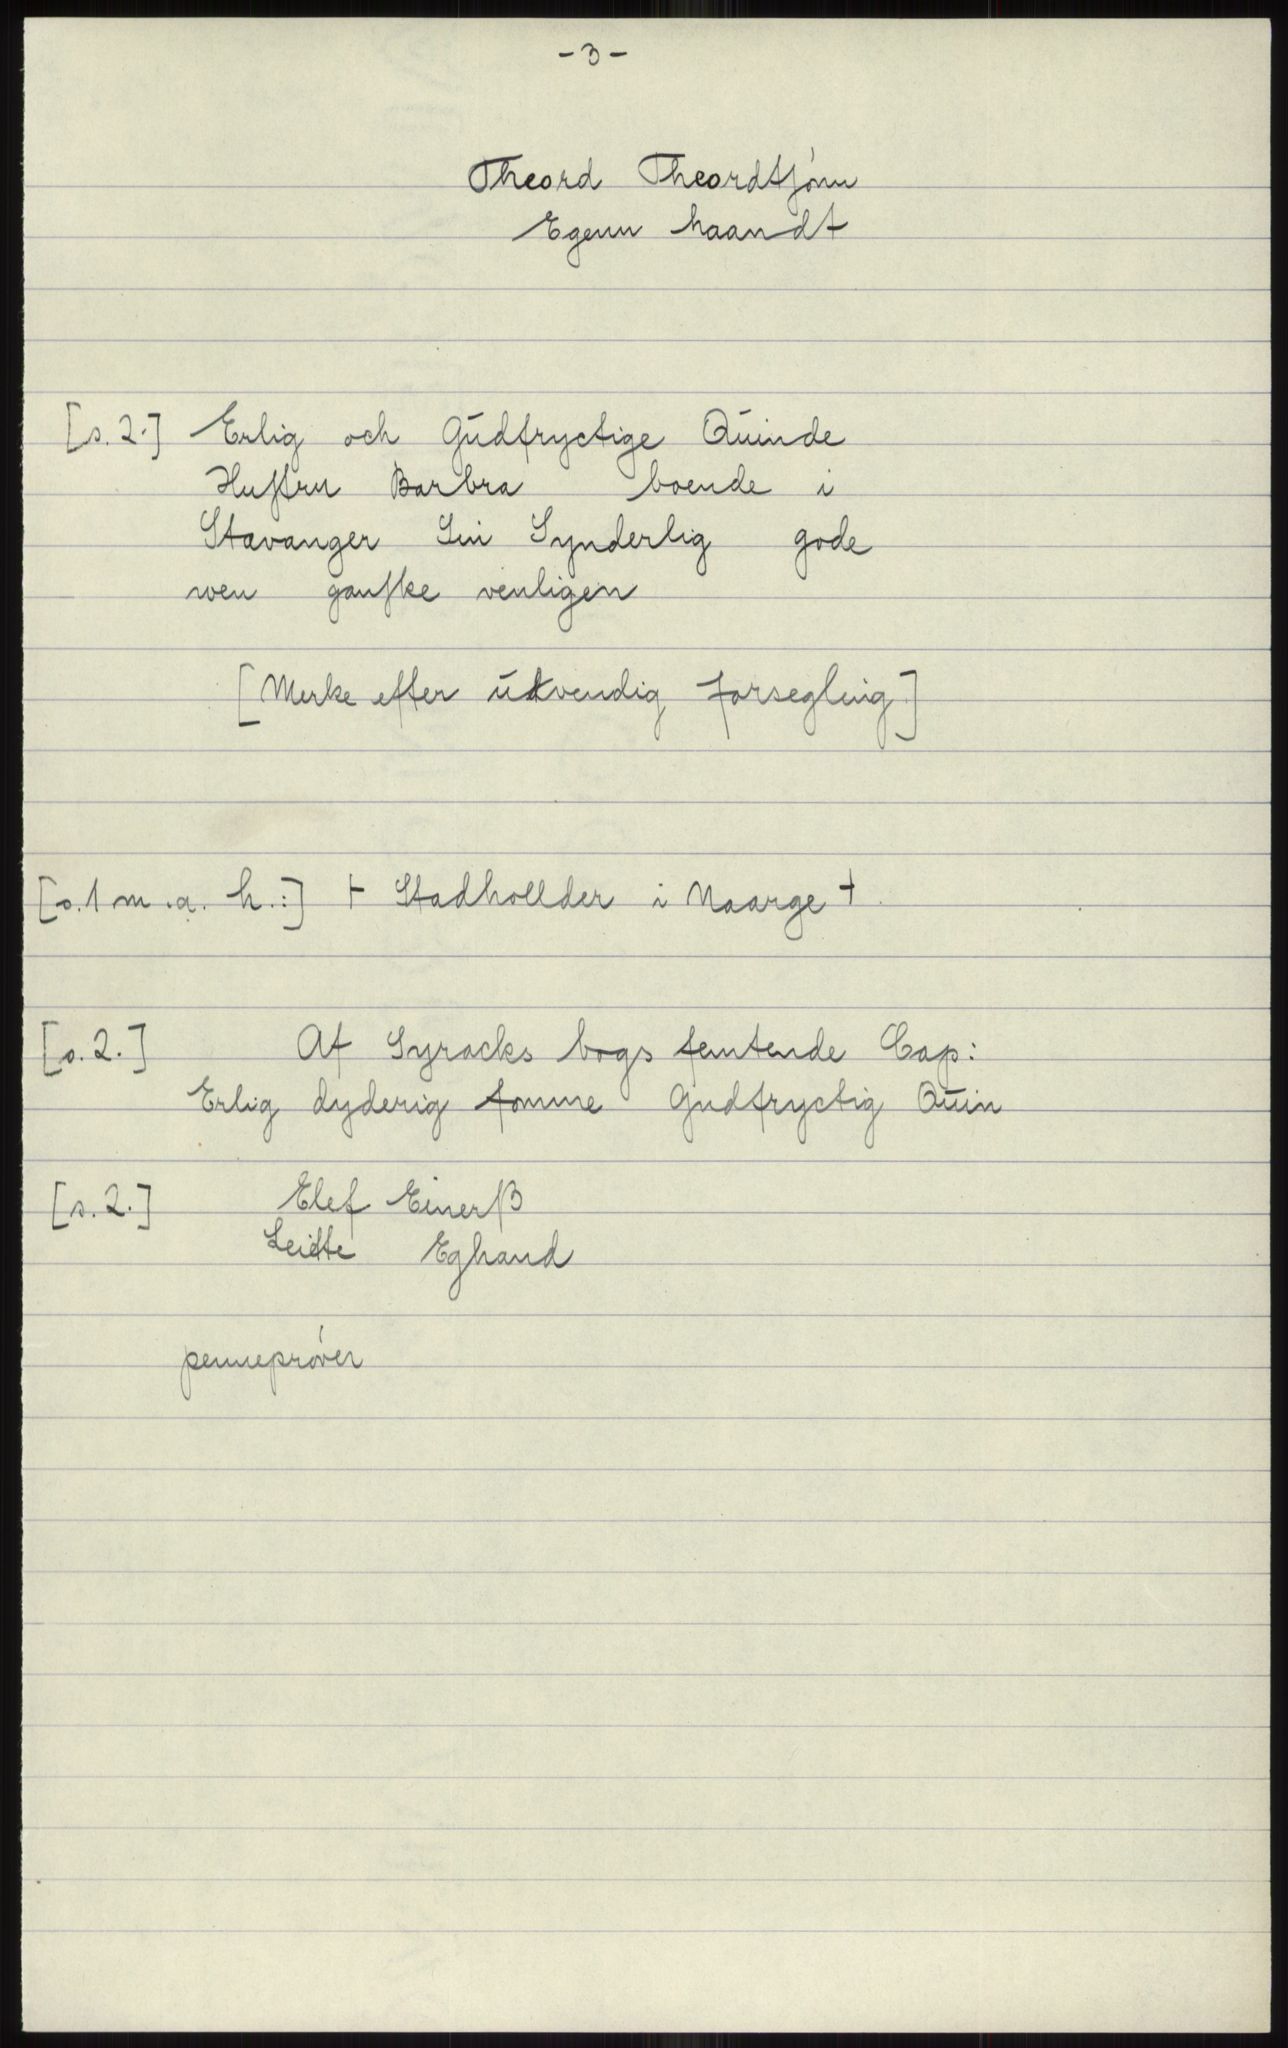 - 3 -
Theord Theordtſónn
Egenn haandt
[s. 2.] Erlig och Gŭdfryctige Qŭinde
Huſtru Barbra boende i
Stavanger Sin Synderlig gode
wen ganſke venligen
[Merke efter ŭtvendig forsegling]
[s. 1 m. a. h.:] + Stadhollder i Naarge +
[s. 2.] Af Syracks bogs femtende Cap:
Erlig dyderig fomme Gudfryctig Qŭin
[s. 2.] Elef Einerß
Leidte Eghand
pennepróver